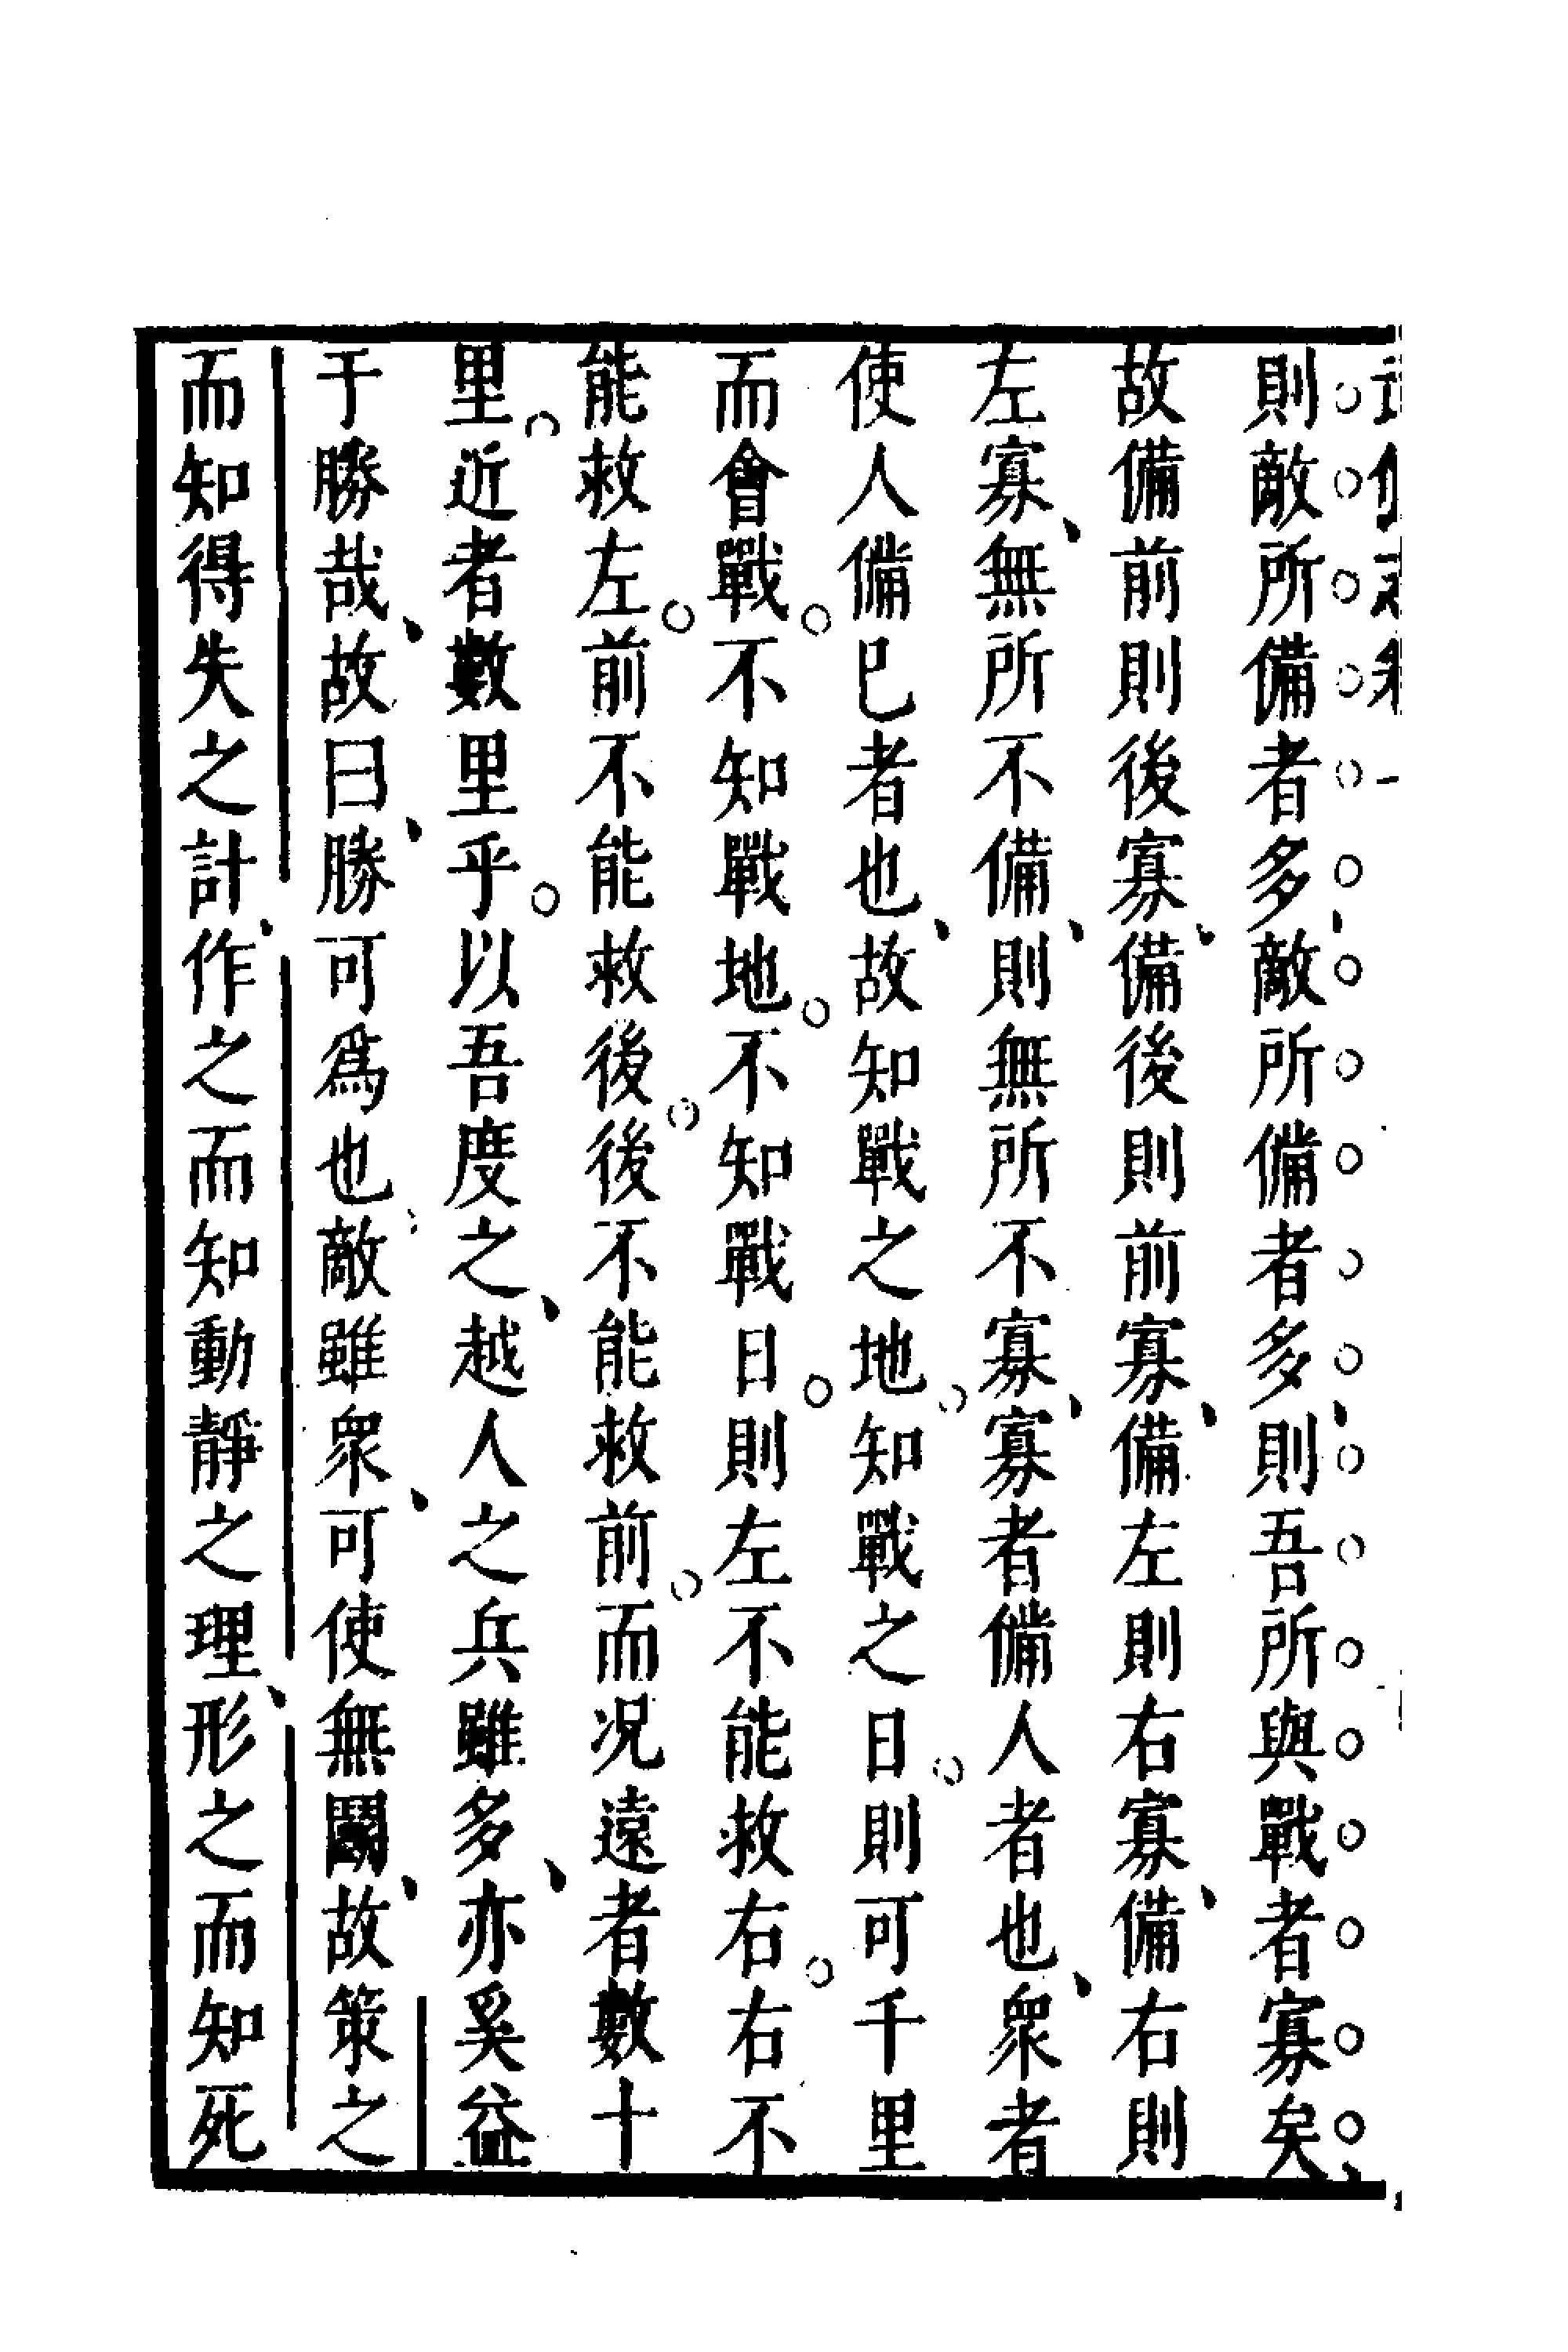 則敵所備者多敵所備者多則吾所與戰者寡矣
故備前則後寡備後則前寡備左則右寡備右則
左寡無所不備則無所不寡寡者備人者也衆者
使人備已者也故知戰之地知戰之日則可千里
而會戰不知戰地不知戰日則左不能救右右不
能救左前不能救後後不能救前而况遠者數十
里近者數里乎以吾度之越人之兵雖多亦奚益
于勝哉故曰勝可爲也敵雖衆可使無鬭故策之
而知得失之計作之而知動靜之理形之而知死